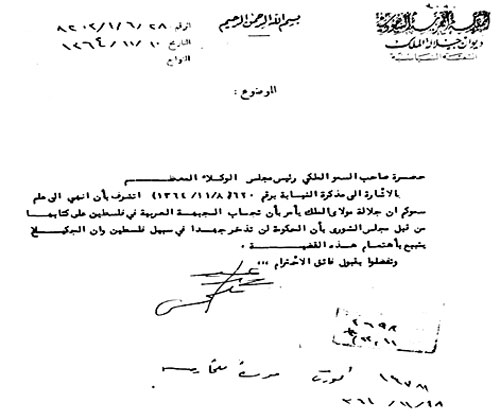 المملكة العربية السعودية
ديوان جلالة الملك
الشعبة السياسية
بسم الله الرحمن الرحيم
الرقم ٨٢٠٢/١/٦/٢٨
التاريخ ١٣٦٤/١١/١٠
التوابع
الموضوع :
حضرة صاحب السمو الملكي رئيس مجلس الوكلاء المعظم
بالاشارة الى مذكرة النيابة برقم ٦٢٠ (١٣٦٤/١١/٨) اتشرف بأن انهي الى علم
سموكم ان جلالة مولاي الملك يأمر بأن تجاب الجبهة العربية في فلسطين على كتابها
من قبل مجلس الشورى بأن الحكومة لن تدخر جهدا في سبيل فلسطين وان الجميع
يتبع بأهتمام هذه القضية
وتفضلوا بقبول فائق الاحترام ،،،
٢٦٩٨